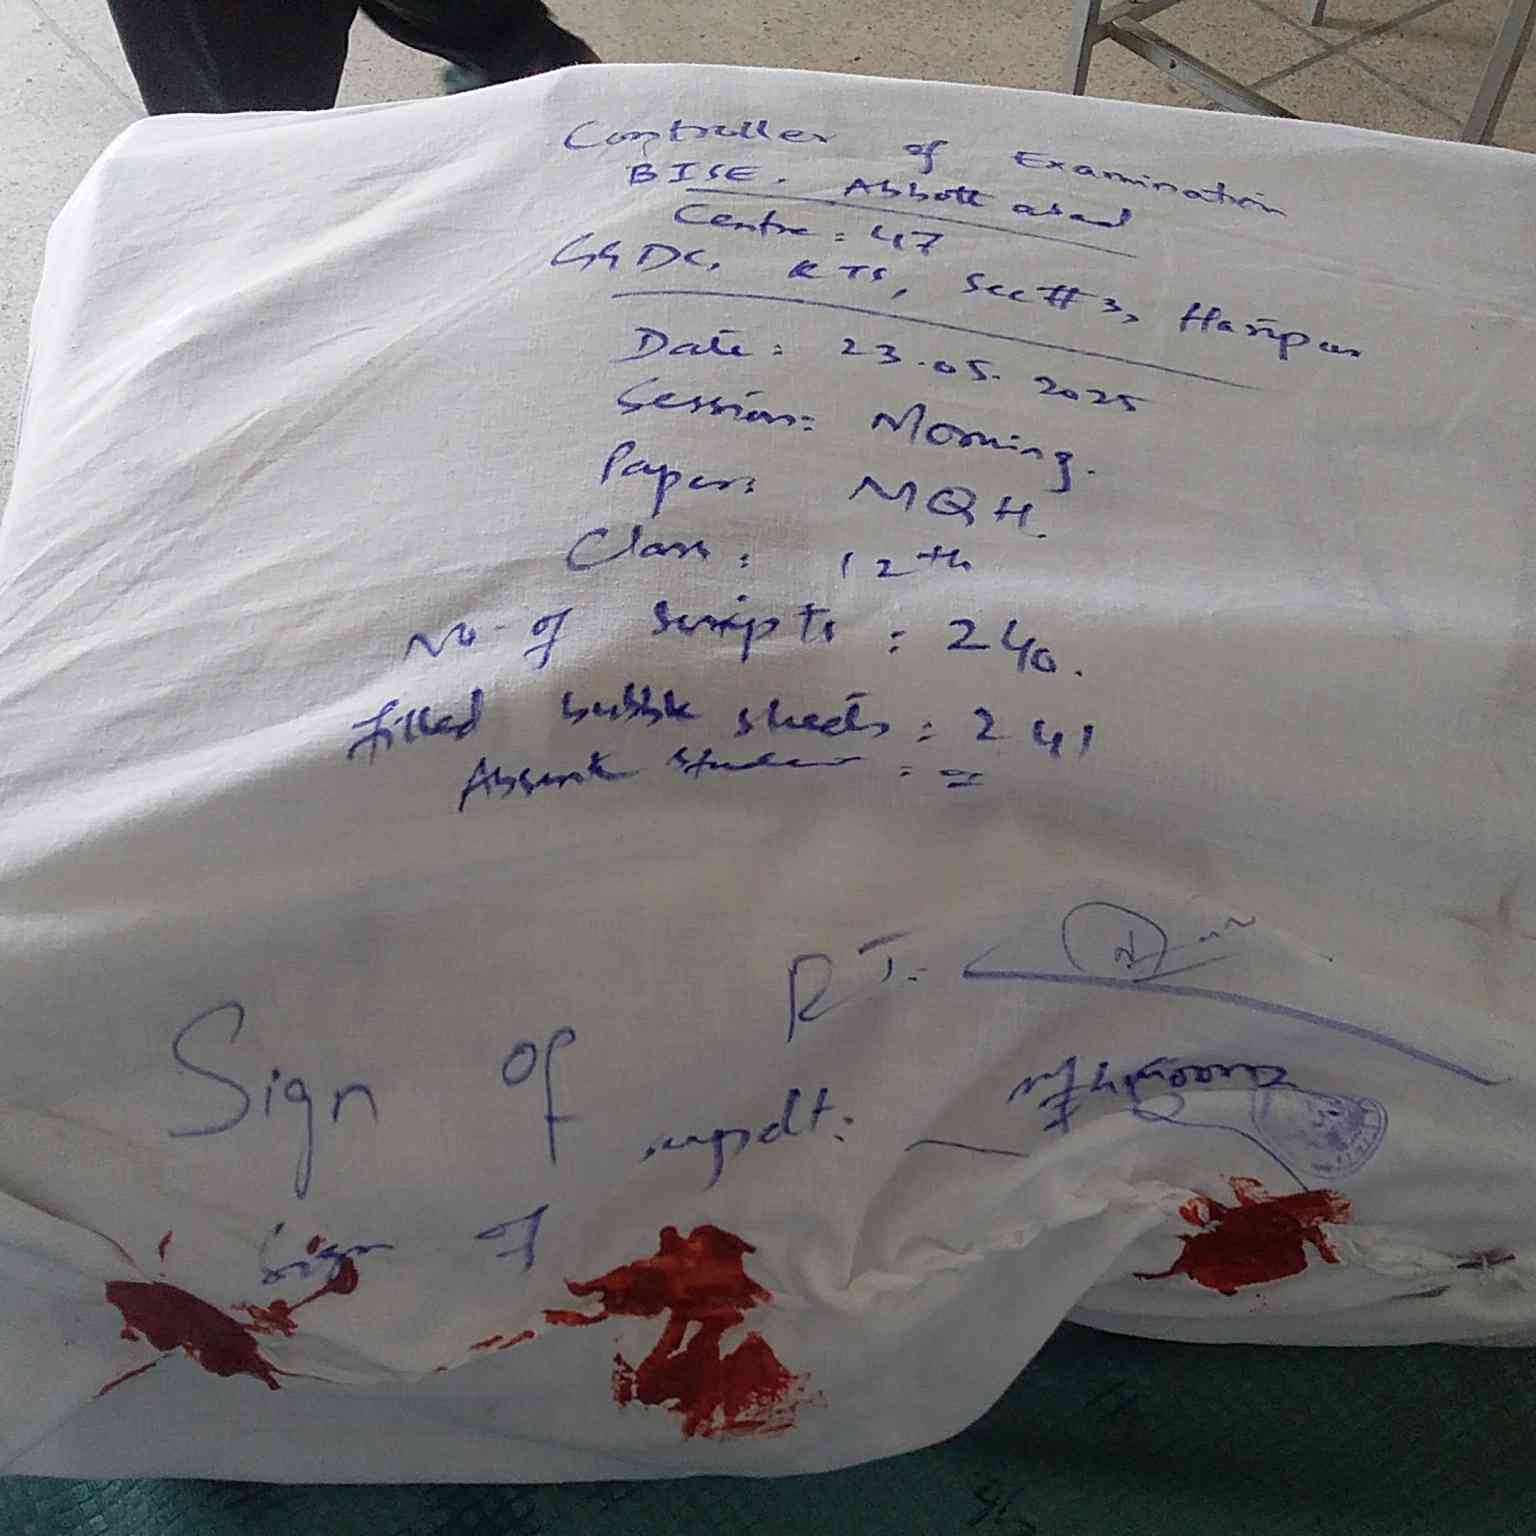 Controller of Examination
BISE. Abbott abad
Centre: 47
GGDC, KTS, Sec#3, Haripur
Date: 23.05.2025
Session: Morning.
Paper: MQH.
Class: 12th
No. of scripts: 240.
filled bubble sheets: 241
Absent student: =
RI:
Sign of
supdt:
Sign of